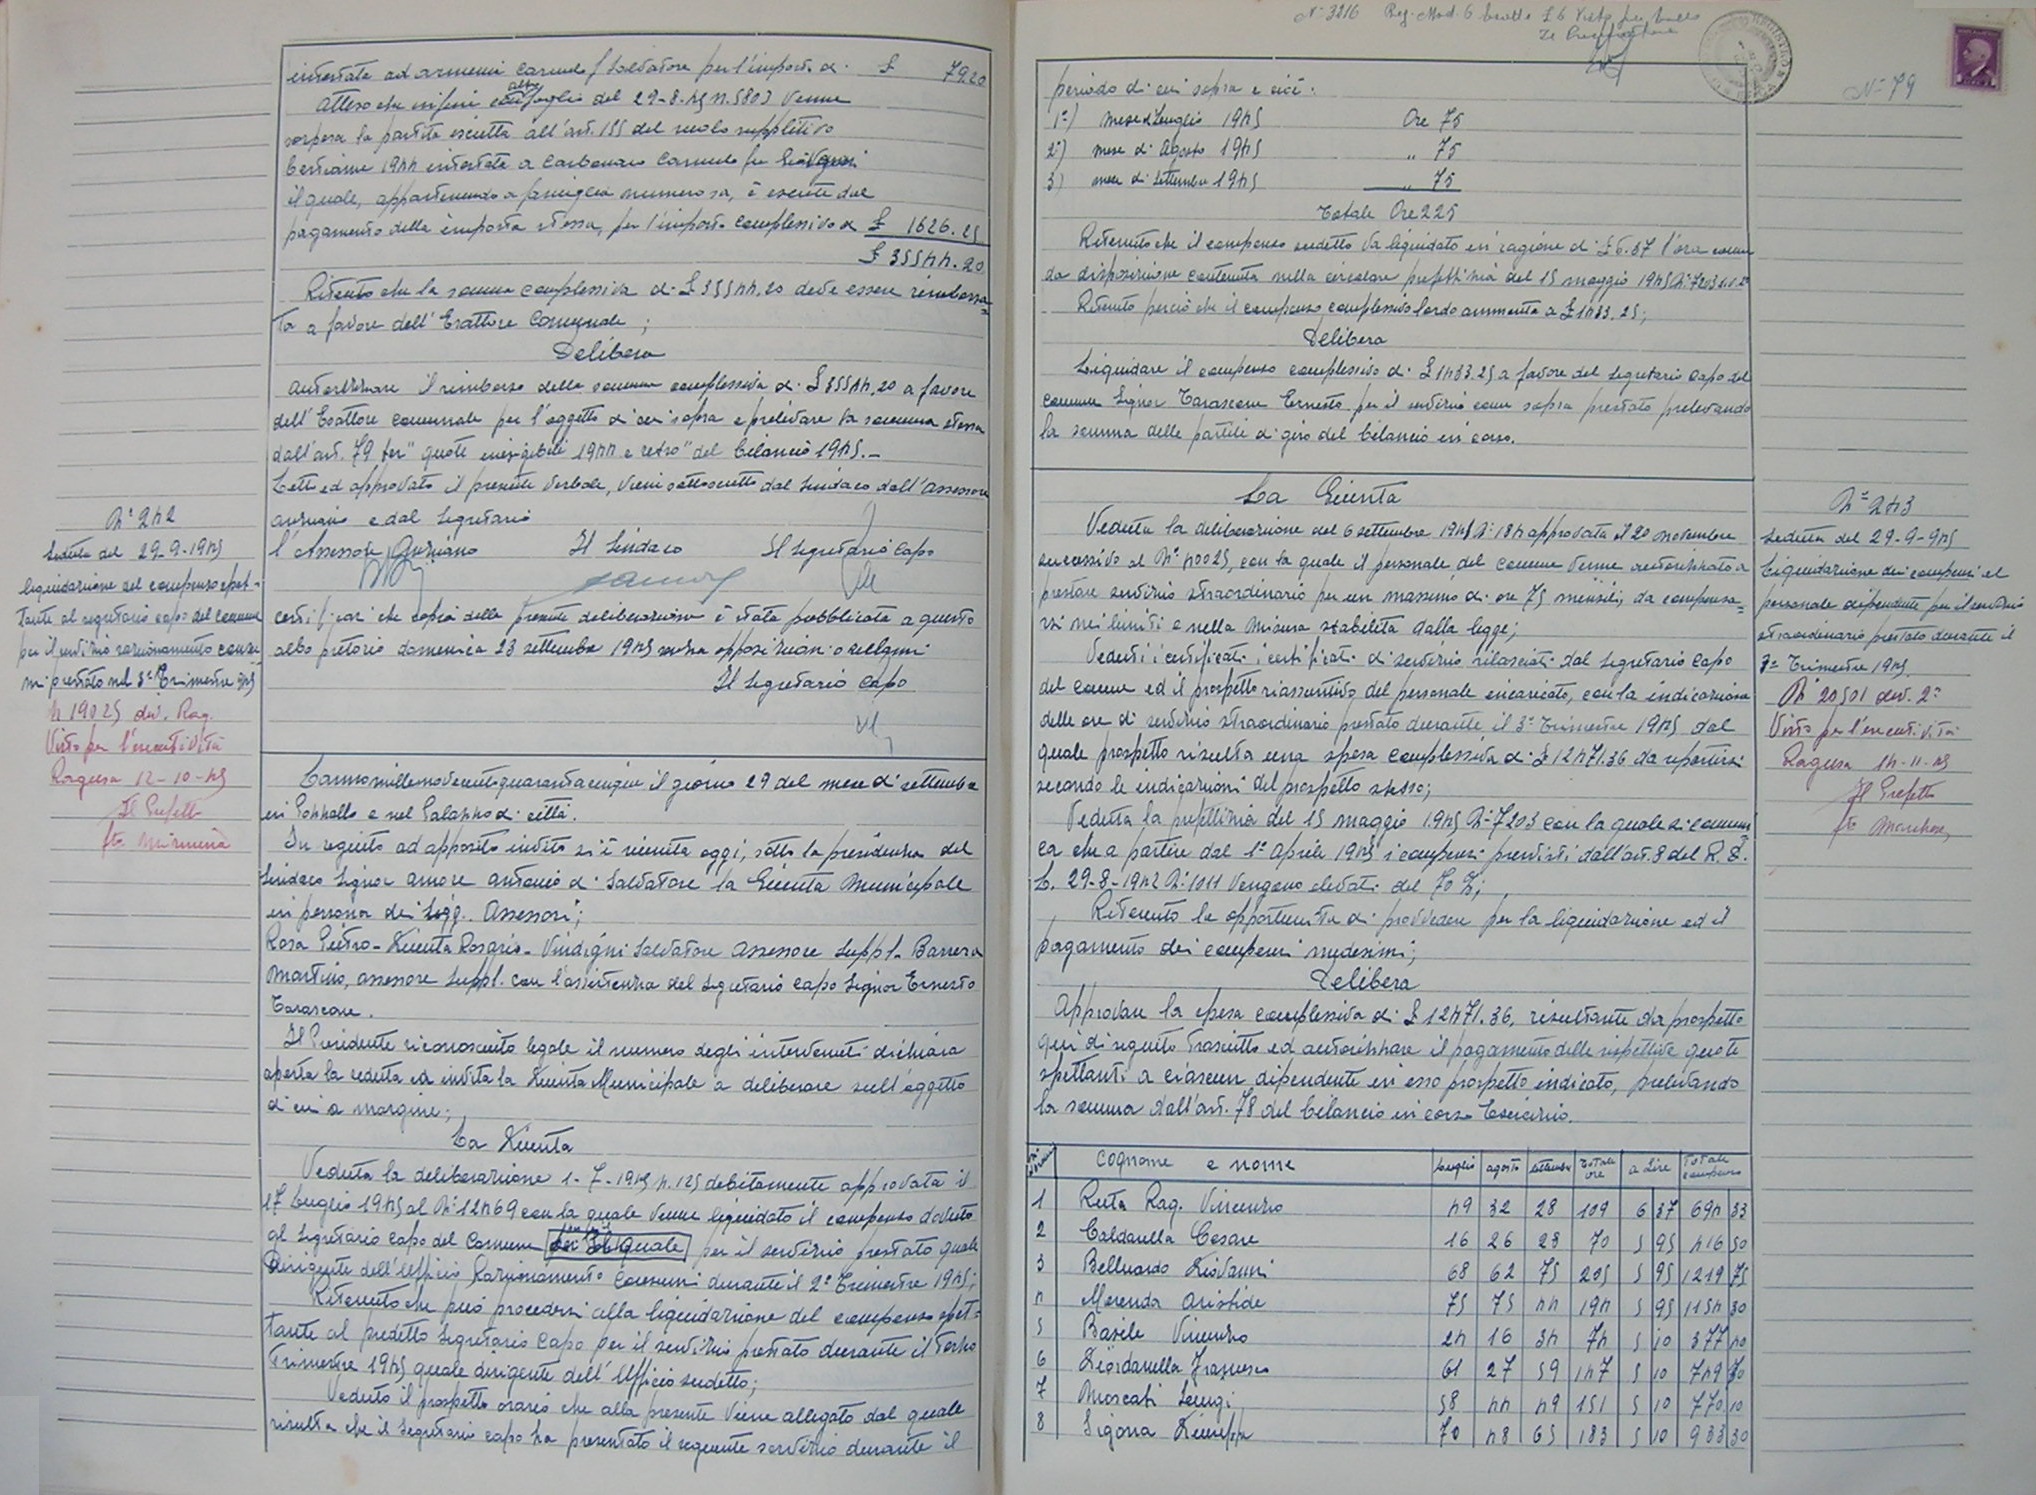 intestate ad armenia carmelo f Salvatore per l'importo di £ 79.20
Atteso che infine con altro foglio del 29-8-45 n. 5803 venne
sospesa la partita iscritta all'art. 155 del ruolo suppletivo
bestiame 1944 intestata a Carbonaro Carmelo fu Giovanni
il quale, appartenendo a famiglia numerosa, è esente dal
pagamento della imposta stessa, per l'importo complessivo di £ 1626.25
£ 35544.20
Ritenuto che la somma complessiva di £ 35544,20 deve essere rimborsa=
ta a favore dell'Esattore Comunale;
Delibera
Autorizzare il rimborso della somma complessiva di £ 35544,20 a favore
dell'Esattore comunale per l'oggetto di cui sopra e prelevare la somma stessa
dall'art. 79 ter "quote inesigibili 1944 e retro" del bilancio 1945.-
Letto ed approvato il presente verbale, viene sottoscritto dal Sindaco dall'Assessore
anziano e dal Segretario
l'Assessore Anziano Il Sindaco Il Segretario Capo
certificasi che copia della presente deliberazione è stata pubblicata a questo
albo pretorio domenica 23 settembre 1945 senza opposizioni o reclami
Il Segretario Capo
N° 242
Seduta del 29-9-1945
liquidazione del compenso spet-
tante al segretario capo del comune
per il servizio razionamento consu
mi prestato nel 3° Trimestre 945
N 19025 div. Rag.
Visto per l'esecutività
Ragusa 12-10-45
Il Prefetto
fto Mirmina
L'anno millenovecentoquarantacinque il giorno 29 del mese di settembre
in Pozzallo e nel Palazzo di città.
In seguito ad apposito invito si è riunita oggi, sotto la presidenza del
Sindaco Signor Amore Antonio di Salvatore la Giunta Municipale
in persona dei Sigg. Assessori;
Rosa Pietro - Giunta Rosario - Vindigni Salvatore assessore suppl. Barrera
Martino, assessore suppl. con l'assistenza del Segretario capo Signor Ernesto
Tarascone.
Il Presidente riconosciuto legale il numero degli intervenuti dichiara
aperta la seduta ed invita la Giunta Municipale a deliberare sull'oggetto
di cui a margine;
La Giunta
Veduta la deliberazione 1-7-1945 n. 125 debitamente approvata il
17 Luglio 1945 al N° 12469 con la quale venne liquidato il compenso dovuto
al Segretario capo del Comune per il servizio prestato quale
Dirigente dell'Ufficio Razionamento Consumi durante il 2° Trimestre 1945;
Ritenuto che può procedersi alla liquidazione del compenso spet-
tante al predetto Segretario Capo per il servizio prestato durante il terzo
trimestre 1945 quale dirigente dell'Ufficio suddetto;
Veduto il prospetto orario che alla presente viene allegato dal quale
risulta che il Segretario capo ha presentato il seguente servizio durante il
N° 3216 Reg. Mod. 6
N° 79
periodo di cui sopra e cioè:
1°) mese di Luglio 1945 Ore 75
2°) mese di Agosto 1945 " 75
3) mese di Settembre 1945 " 75
Totale Ore 225
Ritenuto che il compenso suddetto va liquidato in ragione di £ 6.37 l'ora come
da disposizione contenuta nella circolare prefettizia del 15 maggio 1945 N° 7203
Ritenuto perciò che il compenso complessivo lordo ammonta a £ 1433.25;
Delibera
Liquidare il compenso complessivo di £ 1433.25 a favore del Segretario Capo del
comune Signor Tarascone Ernesto per il servizio come sopra prestato prelevando
la somma delle partite di giro del bilancio in corso.
La Giunta
Veduta la deliberazione del 6 settembre 1945 N° 184 approvata il 20 novembre
successivo al N° 40025, con la quale il personale del comune venne autorizzato a
prestare servizio straordinario per un massimo di ore 75 mensili, da compensar=
si nei limiti e nella misura stabilita dalla legge;
Veduti i certificati i certificati di servizio rilasciati dal Segretario Capo
del comune ed il prospetto riassuntivo del personale incaricato, con la indicazione
delle ore di servizio straordinario prestato durante il 3° Trimestre 1945 dal
quale prospetto risulta una spesa complessiva di £ 12471.36 da ripartirsi
secondo le indicazioni del prospetto stesso;
Veduta la prefettizia del 15 maggio 1945 N° 7203 con la quale si comuni
ca che a partire dal 1° Aprile 1945 i compensi previsti dall'art. 8 del R. D.
L. 29-8-1942 N° 1011 vengono elevati del 70 %;
Ritenuto la opportunità di provvedere per la liquidazione ed il
pagamento dei compensi medesimi;
Delibera
Approvare la spesa complessiva di £ 12471.36, risultante da prospetto
qui di seguito trascritto ed autorizzare il pagamento delle rispettive quote
spettanti a ciascun dipendente in esso prospetto indicato, prelevando
la somma dall'art. 78 del bilancio in corso Esercizio.
N° 243
Seduta del 29-9-945
Liquidazione dei compensi al
personale dipendente per il servizio
straordinario prestato durante il
3° Trimestre 1945.
N° 20501 div. 2°
Visto per l'esecutività
Ragusa 14-11-45
Il Prefetto
fto Marchese
cognome e nome Luglio agosto settembre Totale ore a Lire Totale compenso
1 Ruta Rag. Vincenzo 49 32 28 109 6 37 694 33
2 Caldarella Cesare 16 26 28 70 5 95 416 50
3 Belluardo Giovanni 68 62 75 205 5 95 1219 75
4 Merenda Aristide 75 75 44 194 5 95 1154 30
5 Basile Vincenzo 24 16 34 74 5 10 377 40
6 Giordanella Francesco 61 27 59 147 5 10 749 70
7 Moscati Luigi 58 44 49 151 5 10 770 10
8 Sigona Giuseppe 70 48 65 183 5 10 933 30